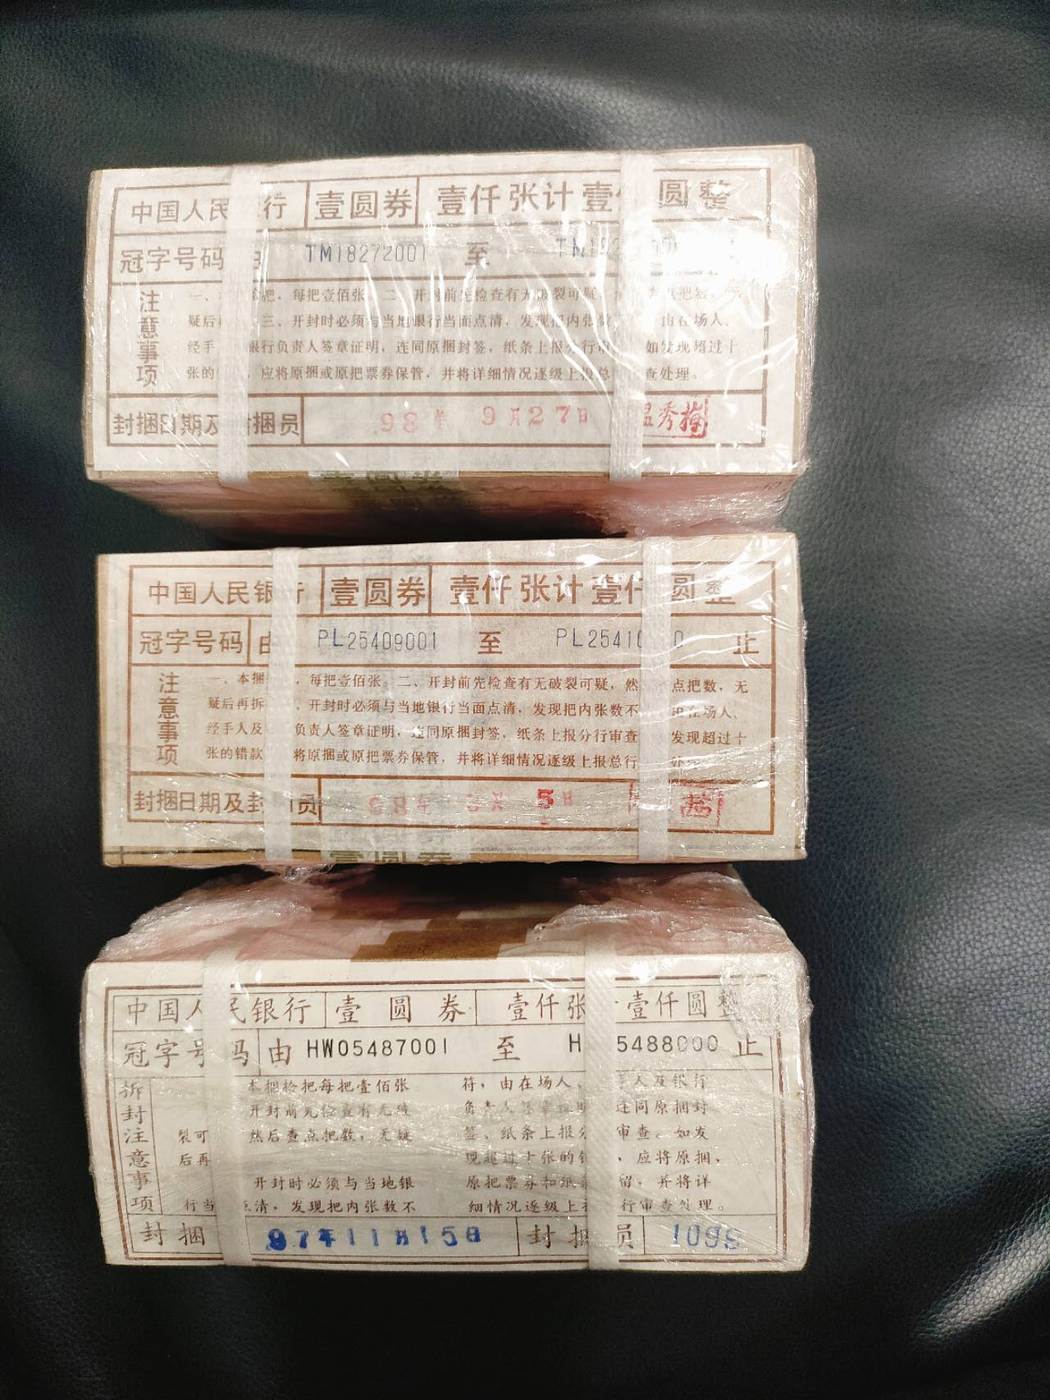 中国人民 行 壹圆券 壹仟张计壹 圆整
冠字号码 TM18272001 至 TM182
注意事项
把,每把壹佰张 二、开封前先检查有无破裂可疑,
疑后 三、开封时必须与当地银行当面点清,发现把内张 由在场人、
经手 银行负责人签章证明,连同原捆封签,纸条上报分行审 如发现超过十
张的 应将原捆或原把票券保管,并将详细情况逐级上报总 查处理。
封捆日期及封捆员 98年 9月27日 温秀
壹圆券
中国人民银行 壹圆券 壹仟张计壹仟圆整
冠字号码 由 PL25409001 至 PL2541 0 止
注意事项
一、本捆 ,每把壹佰张。二、开封前先检查有无破裂可疑,然 点把数,无
疑后再拆 、开封时必须与当地银行当面点清,发现把内张数不 由在场人、
经手人及 负责人签章证明,连同原捆封签,纸条上报分行审查 发现超过十
张的错款 将原捆或原把票券保管,并将详细情况逐级上报总行
封捆日期及封 员 年 月 5日
壹圆券
中国人民银行 壹圆券 壹仟张 壹仟圆整
冠字号码 由 HW05487001 至 H 5488000 止
拆封注意事项
本捆拾把每把壹佰张
开封前先检查有无破
裂可 然后查点把数,无疑
后再
开封时必须与当地银
行当 点清,发现把内张数不
符,由在场人、 手人及银行
负责人签章证明 连同原捆封
签、纸条上报分 审查。如发
现超过十张的错 ,应将原捆,
原把票券和纸 留,并将详
细情况逐级上 行审查处理。
封捆 97年11月15日 封捆员 109